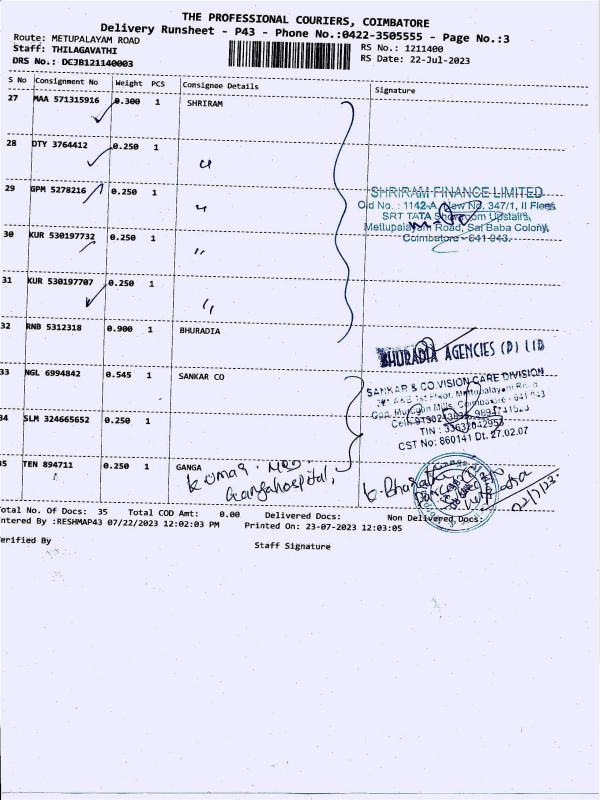 THE PROFESSIONAL COURIERS, COIMBATORE
Delivery Runsheet - P43 - Phone No.:0422-3505555 - Page No.:3
Route: METUPALAYAM ROAD
RS No.: 1211400
Staff: THILAGAVATHI
RS Date: 22-Jul-2023
DRS No.: DCJB121140003
S No Consignment No Weight PCS Consignee Details Signature
27 MAA 571315916 0.300 1 SHRIRAM
28 DTY 3764412 0.250 1 "
29 GPM 5278216 0.250 1 "
SHRIRAM FINANCE LIMITED
Old No. : 1142-A, New No. 347/1, II Floor,
SRT TATA Showroom Upstairs,
Mettupalayam Road, Sai Baba Colony,
Coimbatore - 641 043.
30 KUR 530197732 0.250 1 "
31 KUR 530197707 0.250 1 "
32 RNB 5312318 0.900 1 BHURADIA
BHURADIA AGENCIES (P) LTD
33 NGL 6994842 0.545 1 SANKAR CO
SANKAR & CO VISION CARE DIVISION
Floor, Mettupalayam Road
Opp. Murugan Mills, Coimbatore - 641 043
Cell:
TIN : 33632042953
CST No: 860141 Dt. 27.02.07
34 SLM 324665652 0.250 1
35 TEN 894711 0.250 1 GANGA
Kumar. MRD.
Ganga hospital,
22/7/23.
Total No. Of Docs: 35 Total COD Amt: 0.00 Delivered Docs: Non Delivered Docs:
Entered By :RESHMAP43 07/22/2023 12:02:03 PM Printed On: 23-07-2023 12:03:05
Verified By
Staff Signature